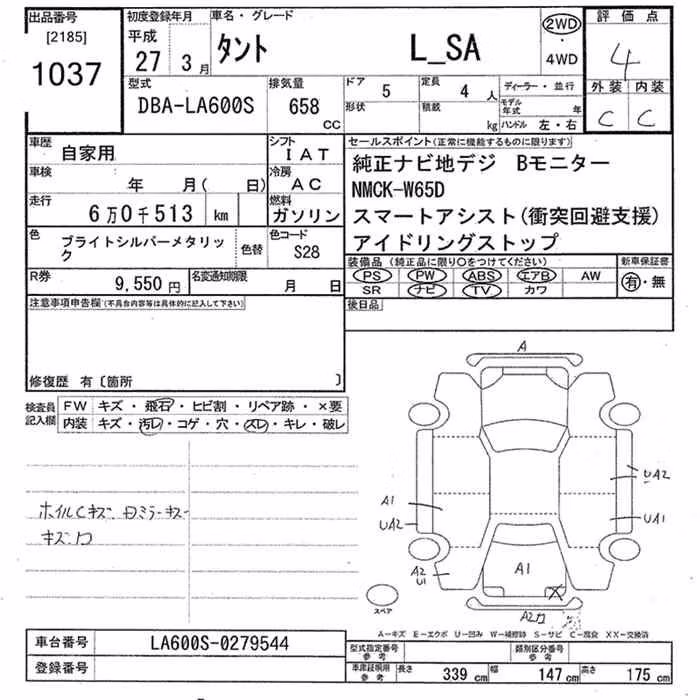 出品番号 初度登録年月 車名・グレード 評価点
[2185] 平成 2WD
1037 27 3月 タント L_SA ・ 4
4WD
型式 排気量 ドア 5 定員 4人 ディーラー・並行 外装 内装
DBA-LA600S 658 cc 形状 積載 kg モデル年式 年 C C
ハンドル 左・右
車歴 自家用 シフト IAT セールスポイント(正常に機能するものに限ります)
車検 年 月( 日) 冷房 AC 純正ナビ地デジ Bモニター
走行 6万0千513 km 燃料 ガソリン NMCK-W65D
スマートアシスト(衝突回避支援)
色 ブライトシルバーメタリック 色替 色コード S28 アイドリングストップ
装備品(純正品に限り○をつけてください) 新車保証書
R券 9,550円 名変通知期限 月 日 PS PW ABS エアB AW 有・無
SR ナビ TV カワ
注意事項申告欄(不具合内容等は具体的に記入して下さい) 後日品
修復歴 有〔箇所 〕
検査員記入欄 FW キズ・飛石・ヒビ割・リペア跡・×要
内装 キズ・汚レ・コゲ・穴・スレ・キレ・破レ
ホイルCキズ
キズ
A
UA2
A1
UA2 UA1
A2
U1 A1 X
スペア A2
A−キズ E−エクボ U−凹み W−補修跡 S−サビ C−腐食 XX−交換済
車台番号 LA600S-0279544 型式指定番号 参考 類別区分番号 参考
登録番号 車庫証明用 参考 長さ 339 cm 幅 147 cm 高さ 175 cm